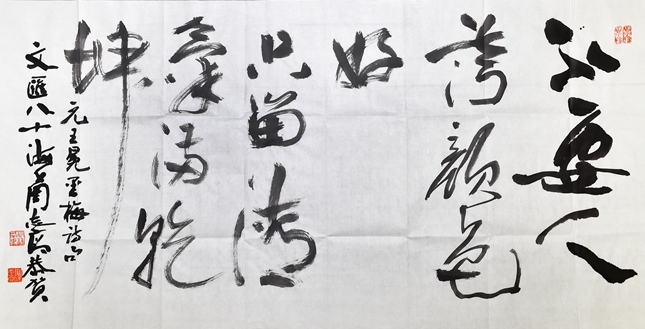 不要人
夸颜色
好
只留清
氣满乾
坤
元王冕墨梅诗句
文匯八十 恭贺